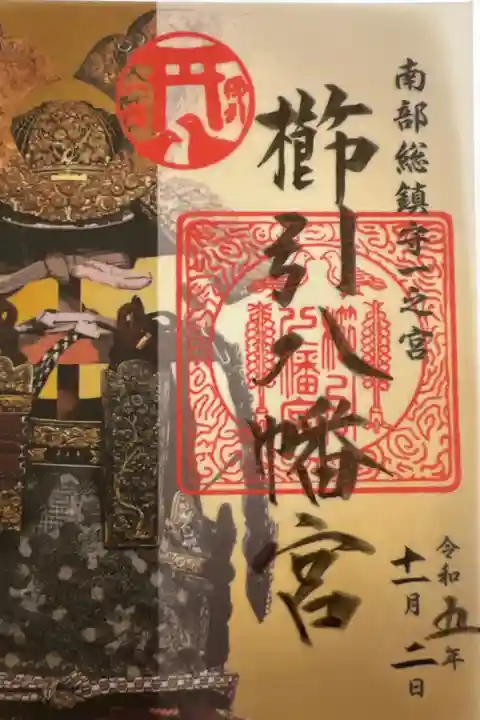 南部総鎮守一之宮
櫛引八幡宮
令和五年
十一月二日